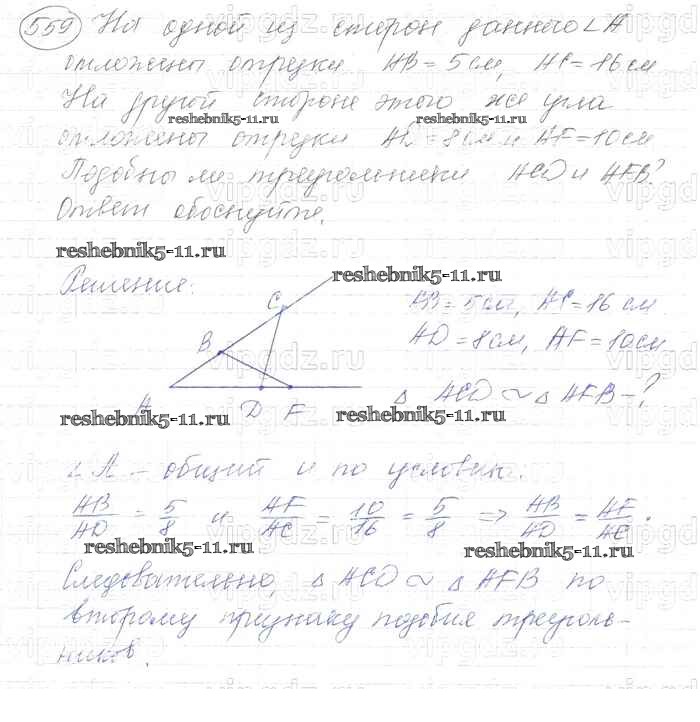 559 На одной из сторон данного ∠ A
отложены отрезки AB = 5 см, AC = 16 см
На другой стороне этого же угла
reshebnik5-11.ru
отложены отрезки AD = 8 см и AF = 10 см
Подобны ли треугольники ACD и AFB?
Ответ обоснуйте.
reshebnik5-11.ru
Решение:
reshebnik5-11.ru
C
AB = 5 см, AC = 16 см
AD = 8 см, AF = 10 см
B
Δ ACD ~ Δ AFB - ?
A D F
reshebnik5-11.ru reshebnik5-11.ru
∠ A - общий и по условию:
AB/AD = 5/8 и AF/AC = 10/16 = 5/8 => AB/AD = AF/AC.
reshebnik5-11.ru reshebnik5-11.ru
Следовательно, Δ ACD ~ Δ AFB по
второму признаку подобия треуголь-
ников.
vipgdz.ru